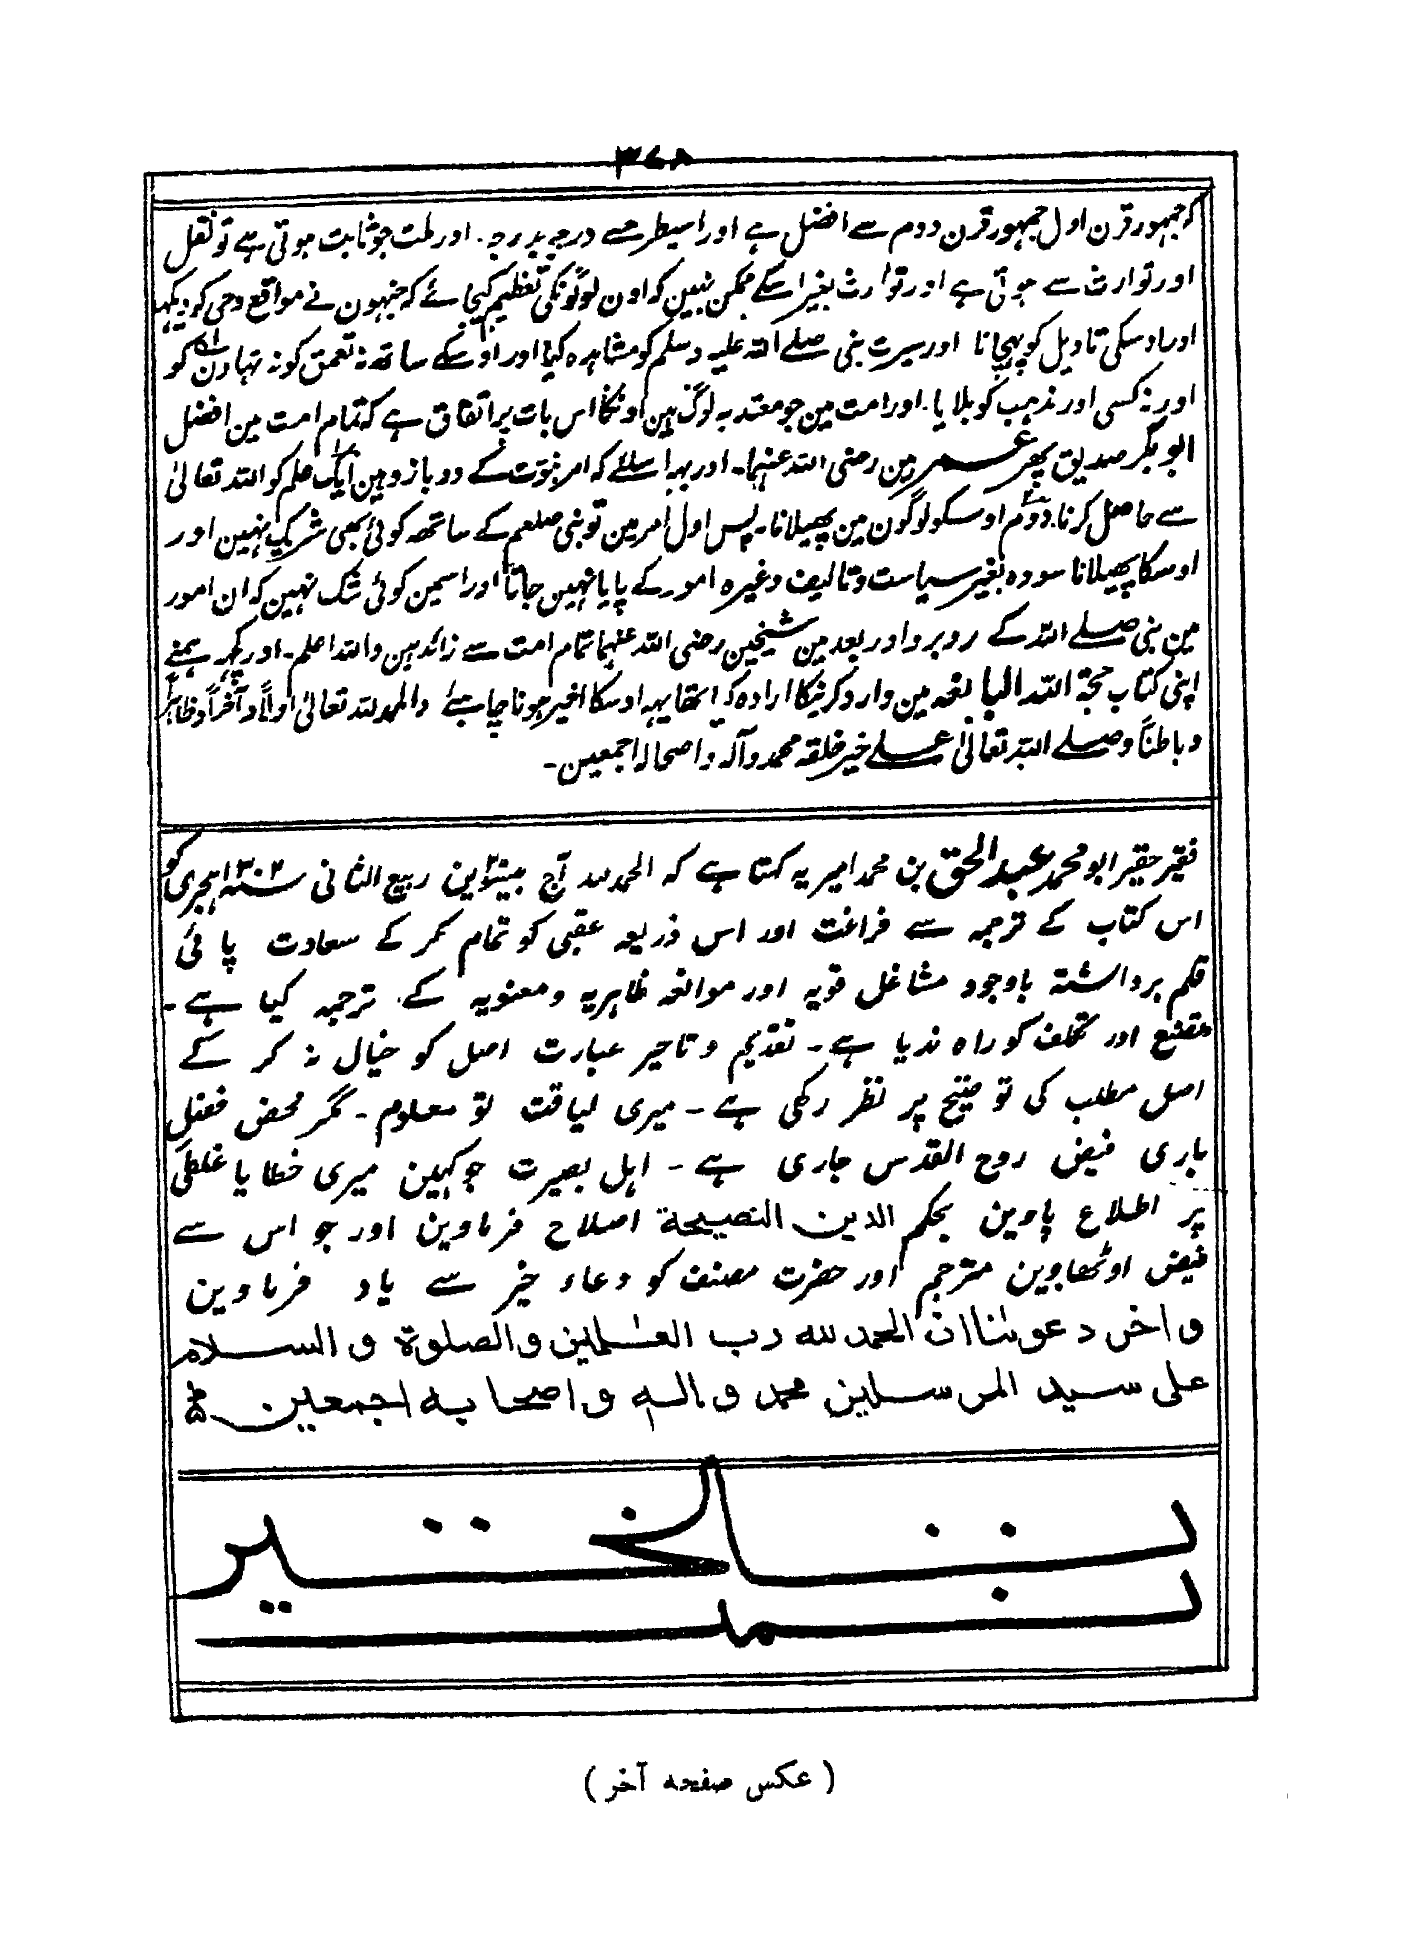 ۳۶۸
کہ جمہور قرن اول جمہور قرن دوم سے افضل ہے اور اسیطرحسے درجہ بدرجہ۔ اور ملت جو ثابت ہوتی ہے تو نقل
اور توارث سے ہوتی ہے اور توارث بغیر اسکے ممکن نہین کہ اون لوگونکی تعظیم کیجائے کہ جنہون نے مواقع وحی کو دیکہا
اور اوسکی تاویل کو پہچانا اور سیرت نبی صلے اللہ علیہ وسلم کو مشاہدہ کیا اور اوسکے ساتھ نہ تعمق کو نہ تہاون کو
اور نہ کسی اور مذہب کو بلایا۔ اور امت مین جو معتد بہ لوگ ہین اونکا اس بات پر اتفاق ہے کہ تمام امت مین افضل
ابوبکر صدیق پھر عمر ہین رضی اللہ عنہما۔ اور یہہ اسلئے کہ امر نبوت کے دو بازو ہین ایک علم کو اللہ تعالیٰ
سے حاصل کرنا۔ دوم اوسکو لوگون مین پھیلانا۔ پس اول امر مین تو نبی صلعم کے ساتھ کوئی بھی شریک نہین اور
اوسکا پھیلانا سو وہ بغیر سیاست و تالیف وغیرہ امور کے پایا نہین جاتا اور اسمین کوئی شک نہین کہ ان امور
مین نبی صلے اللہ کے روبرو اور بعد مین شیخین رضی اللہ عنہما تمام امت سے زائد ہین واللہ اعلم۔ اور یہہ جو ہمنے
اپنی کتاب حجۃ اللہ البالغہ مین وارد کرنیکا ارادہ کیا تھا یہہ اوسکا اخیر ہونا چاہیے والحمد للہ تعالیٰ اولاً و آخراً و ظاہراً
و باطناً و صلے اللہ تعالیٰ علے خیر خلقہ محمد و آلہ و اصحابہ اجمعین۔
فقیر حقیر ابو محمد عبد الحق بن محمد امیر یہ کہتا ہے کہ الحمد للہ آج ربیع الثانی سنہ ۱۳۰۲ ہجری کو
اس کتاب کے ترجمہ سے فراغت اور اس ذریعہ عقبی کو تمام کر کے سعادت پائی
قلم برداشتہ باوجود مشاغل قویہ اور موانعہ ظاہریہ و معنویہ کے ترجمہ کیا ہے۔
تصنع اور تکلف کو راہ ندیا ہے۔ تقدیم و تاخیر عبارت اصل کو خیال نہ کر کے
اصل مطلب کی توضیح پر نظر رکھی ہے۔ میری لیاقت تو معلوم۔ مگر محض فضل
باری فیض روح القدس جاری ہے۔ اہل بصیرت جو کہین میری خطا یا غلطی
پر اطلاع پاوین بحکم الدین النصیحۃ اصلاح فرماوین اور جو اس سے
فیض اوٹھاوین مترجم اور حضرت مصنف کو دعاء خیر سے یاد فرماوین
واخر دعوٰنا ان الحمد لله رب العٰلمین والصلوة والسلام
علی سید المرسلین محمد والہ واصحابہ اجمعین
تمت بالخیر
(عکس صفحہ آخر)